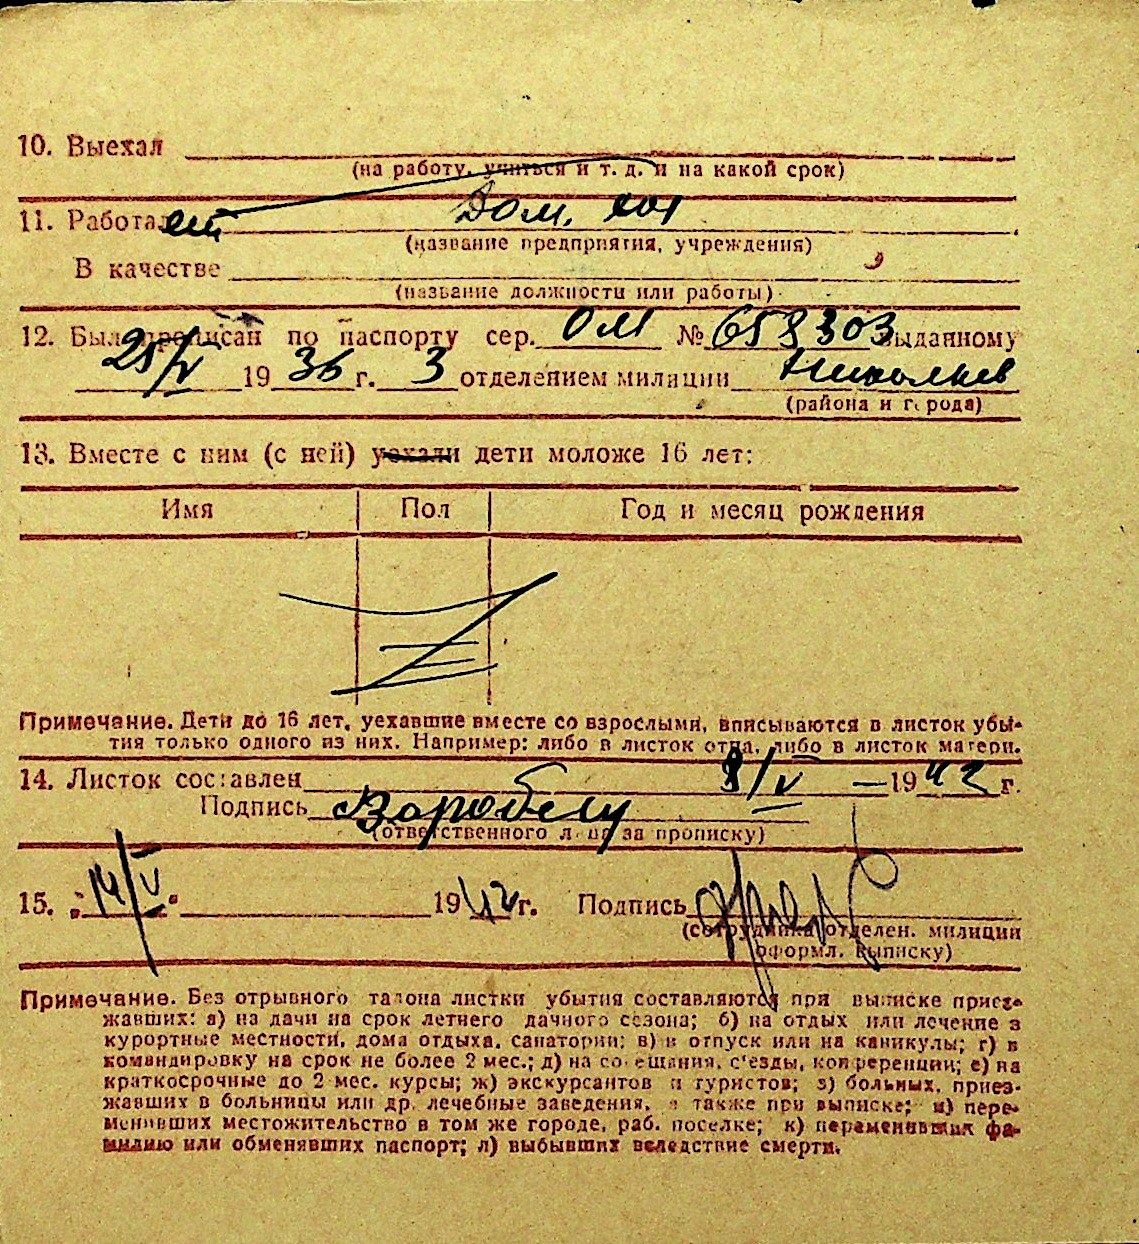 10. Выехал
(на работу, учиться и т. д. и на какой срок)
11. Работает Дом. хоз
(название предприятия, учреждения)
В качестве
(название должности или работы)
12. Был прописан по паспорту сер. ОМ № 658303 выданному
25/V 1936 г. 3 отделением милиции Николаев
(района и города)
13. Вместе с ним (с ней) уехали дети моложе 16 лет:
Имя Пол Год и месяц рождения
Z
Примечание. Дети до 16 лет, уехавшие вместе со взрослыми, вписываются в листок убы-
тия только одного из них. Например: либо в листок отца, либо в листок матери.
14. Листок составлен 8/V — 1942 г.
Подпись
(ответственного лица за прописку)
15. „14/V" 1942 г. Подпись
(сотрудника отделен. милиции
оформл. выписку)
Примечание. Без отрывного талона листки убытия составляются при выписке приез-
жавших: а) на дачи на срок летнего дачного сезона; б) на отдых или лечение в
курортные местности, дома отдыха, санатории; в) в отпуск или на каникулы; г) в
командировку на срок не более 2 мес.; д) на совещания, с'езды, конференции; е) на
краткосрочные до 2 мес. курсы; ж) экскурсантов и туристов; з) больных, приез-
жавших в больницы или др. лечебные заведения, а также при выписке; и) пере-
менивших местожительство в том же городе, раб. поселке; к) переменивших фа-
милию или обменявших паспорт; л) выбывших вследствие смерти.